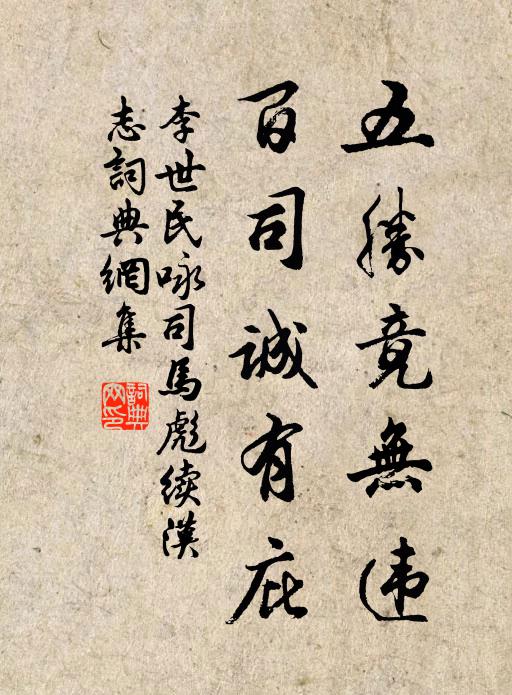 五勝竟無違
百司誠有庇
李世民咏司馬彪續漢
志詞典網集
詞典网印